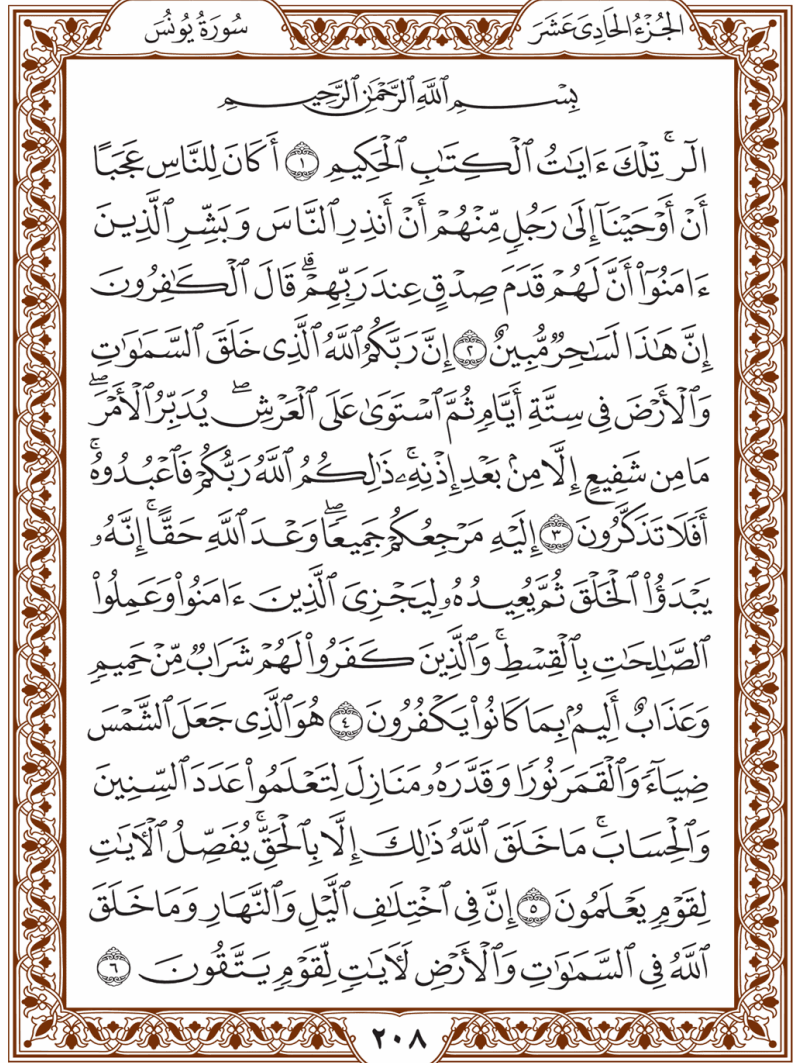 الجُزْءُ الحَادِى عَشَرَ
سُورَةُ يُونُسَ
بِسْمِ ٱللَّهِ ٱلرَّحْمَٰنِ ٱلرَّحِيمِ
الٓر ۚ تِلْكَ ءَايَٰتُ ٱلْكِتَٰبِ ٱلْحَكِيمِ ١ أَكَانَ لِلنَّاسِ عَجَبًا
أَنْ أَوْحَيْنَآ إِلَىٰ رَجُلٍ مِّنْهُمْ أَنْ أَنذِرِ ٱلنَّاسَ وَبَشِّرِ ٱلَّذِينَ
ءَامَنُوٓا۟ أَنَّ لَهُمْ قَدَمَ صِدْقٍ عِندَ رَبِّهِمْ ۗ قَالَ ٱلْكَٰفِرُونَ
إِنَّ هَٰذَا لَسَٰحِرٌ مُّبِينٌ ٢ إِنَّ رَبَّكُمُ ٱللَّهُ ٱلَّذِى خَلَقَ ٱلسَّمَٰوَٰتِ
وَٱلْأَرْضَ فِى سِتَّةِ أَيَّامٍ ثُمَّ ٱسْتَوَىٰ عَلَى ٱلْعَرْشِ ۖ يُدَبِّرُ ٱلْأَمْرَ ۖ
مَا مِن شَفِيعٍ إِلَّا مِنۢ بَعْدِ إِذْنِهِۦ ۚ ذَٰلِكُمُ ٱللَّهُ رَبُّكُمْ فَٱعْبُدُوهُ ۚ
أَفَلَا تَذَكَّرُونَ ٣ إِلَيْهِ مَرْجِعُكُمْ جَمِيعًا ۖ وَعْدَ ٱللَّهِ حَقًّا ۚ إِنَّهُۥ
يَبْدَؤُا۟ ٱلْخَلْقَ ثُمَّ يُعِيدُهُۥ لِيَجْزِىَ ٱلَّذِينَ ءَامَنُوا۟ وَعَمِلُوا۟
ٱلصَّٰلِحَٰتِ بِٱلْقِسْطِ ۚ وَٱلَّذِينَ كَفَرُوا۟ لَهُمْ شَرَابٌ مِّنْ حَمِيمٍ
وَعَذَابٌ أَلِيمٌۢ بِمَا كَانُوا۟ يَكْفُرُونَ ٤ هُوَ ٱلَّذِى جَعَلَ ٱلشَّمْسَ
ضِيَآءً وَٱلْقَمَرَ نُورًا وَقَدَّرَهُۥ مَنَازِلَ لِتَعْلَمُوا۟ عَدَدَ ٱلسِّنِينَ
وَٱلْحِسَابَ ۚ مَا خَلَقَ ٱللَّهُ ذَٰلِكَ إِلَّا بِٱلْحَقِّ ۚ يُفَصِّلُ ٱلْـَٔايَٰتِ
لِقَوْمٍ يَعْلَمُونَ ٥ إِنَّ فِى ٱخْتِلَٰفِ ٱلَّيْلِ وَٱلنَّهَارِ وَمَا خَلَقَ
ٱللَّهُ فِى ٱلسَّمَٰوَٰتِ وَٱلْأَرْضِ لَءَايَٰتٍ لِّقَوْمٍ يَتَّقُونَ ٦
٢٠٨